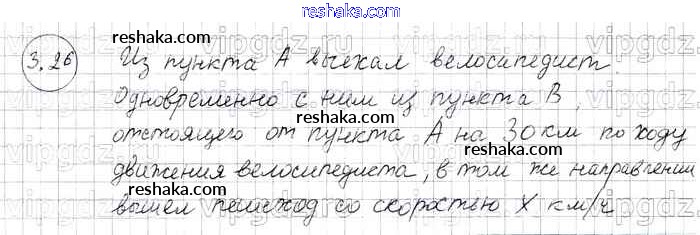 reshaka.com
3.26 Из пункта А выехал велосипедист.
reshaka.com
Одновременно с ним из пункта В,
отстоящего от пункта А на 30 км по ходу
движения велосипедиста, в том же направлении
reshaka.com
вышел пешеход со скоростью х км/ч
reshaka.com